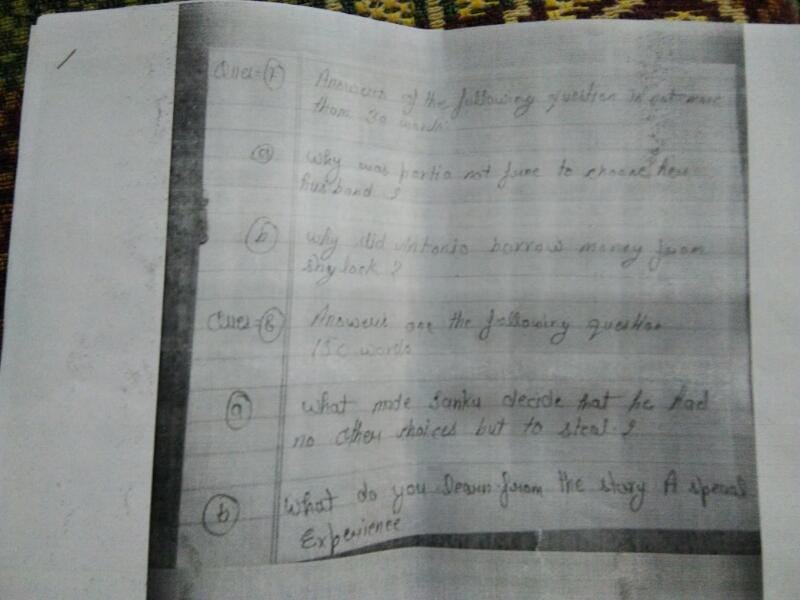 Ques-7 Answers of the following question in not more
than 30 words.
a why was portia not free to choose her
husband ?
b why did Antonio borrow money from
shylock ?
Ques-8 Answers one the following question
150 words
a What made Sanku decide that he had
no other choices but to steal ?
b What do you Learn from the story A special
Experience